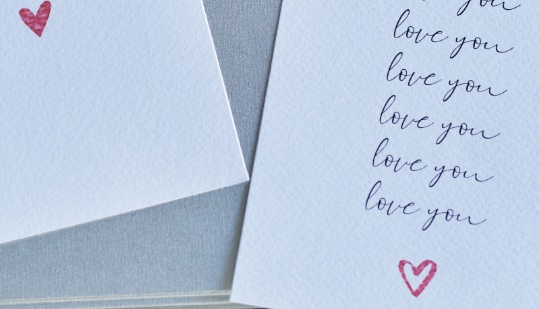 you
love you
love you
love you
love you
love you